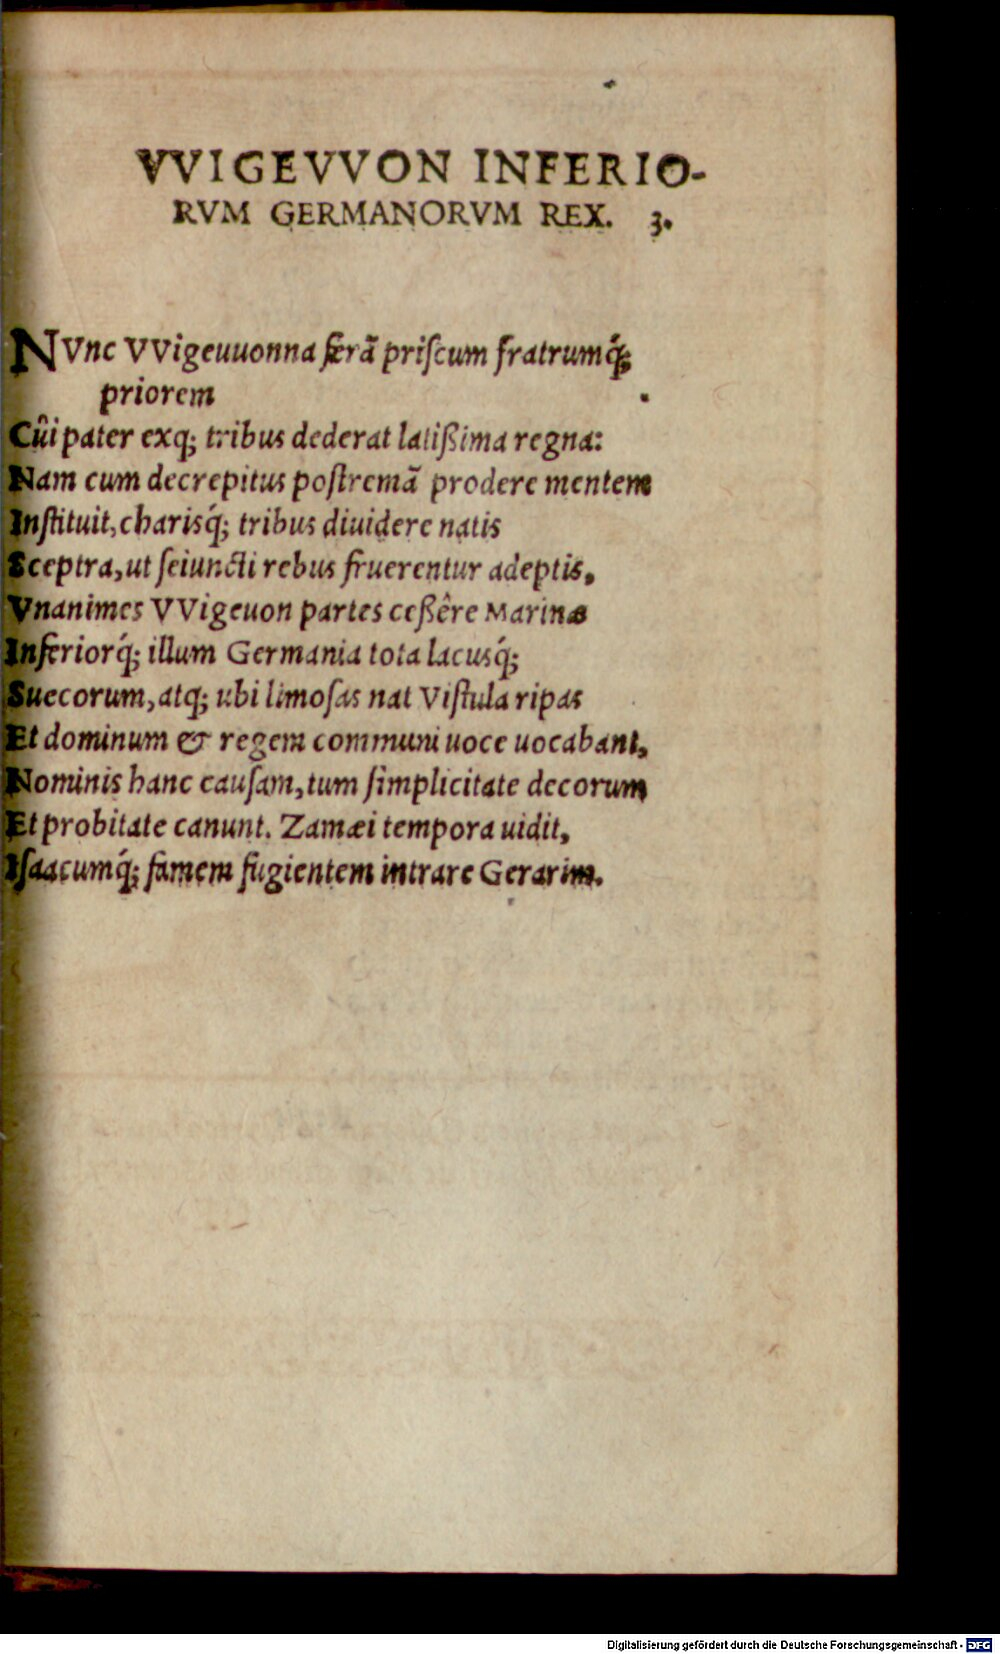 VVIGEVVON INFERIO-
RVM GERMANORVM REX. 3.
NVnc VVigeuuonna ferā priſcum fratrumq́;
priorem
Cûi pater exq; tribus dederat latißima regna:
Nam cum decrepitus poſtremā prodere mentem
Inſtituit, charisq́; tribus diuidere natis
Sceptra, ut ſeiuncti rebus fruerentur adeptis,
Vnanimes VVigeuon partes ceßêre Marinæ
Inferiorq́; illum Germania tota lacusq́;
Suecorum, atq; ubi limoſas nat Viſtula ripas
Et dominum & regem communi uoce uocabant,
Nominis hanc cauſam, tum ſimplicitate decorum
Et probitate canunt. Zamæi tempora uidit,
Iſaacumq́; famem fugientem intrare Gerarim.
Digitalisierung gefördert durch die Deutsche Forschungsgemeinschaft - DFG